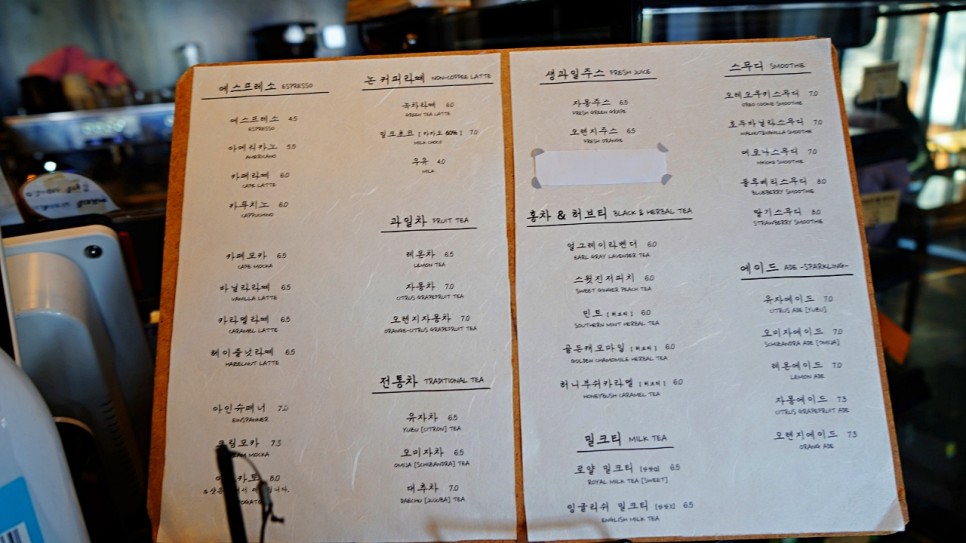 에스프레소 ESPRESSO
에스프레소 4.5
ESPRESSO
아메리카노 5.5
AMERICANO
카페라떼 6.0
CAFE LATTE
카푸치노 6.0
CAPPUCHINO
카페모카 6.5
CAFE MOKKA
바닐라라떼 6.5
VANILLA LATTE
카라멜라떼 6.5
CARAMEL LATTE
헤이즐넛라떼 6.5
HAZELNUT LATTE
아인슈페너 7.0
EINSPANNER
크림모카 7.5
CREAM MOCKA
8.0
논커피라떼 NON-COFFEE LATTE
녹차라떼 6.0
GREEN TEA LATTE
밀크초코 [카카오 60%] 7.0
MILK CHOCO
우유 4.0
MILK
과일차 FRUIT TEA
레몬차 6.5
LEMON TEA
자몽차 7.0
CITRUS GRAPEFRUIT TEA
오렌지자몽차 7.0
ORANGE-CITRUS GRAPEFRUIT TEA
전통차 TRADITIONAL TEA
유자차 6.5
YUBU [CITRON] TEA
오미자차 6.5
OMIJA [SCHIZANDRA] TEA
대추차 7.0
DAECHU [JUJUBA] TEA
생과일주스 FRESH JUICE
자몽주스 6.5
FRESH GREEN GRAPE
오렌지주스 6.5
FRESH ORANGE
홍차 & 허브티 BLACK & HERBAL TEA
얼그레이라벤더 6.0
EARL GRAY LAVENDER TEA
스윗진저피치 6.0
SWEET GINGER PEACH TEA
민트 6.0
SOUTHERN MINT HERBAL TEA
골든캐모마일 6.0
GOLDEN CHAMOMILE HERBAL TEA
허니부쉬카라멜 6.0
HONEYBUSH CARAMEL TEA
밀크티 MILK TEA
로얄 밀크티 6.5
ROYAL MILK TEA [SWEET]
잉글리쉬 밀크티 6.5
ENGLISH MILK TEA
스무디 SMOOTHIE
오레오쿠키스무디 7.0
OREO COOKIE SMOOTHIE
호두바닐라스무디 7.0
WALNUT&VANILLA SMOOTHIE
메로나스무디 7.0
블루베리스무디 8.0
BLUEBERRY SMOOTHIE
딸기스무디 8.0
STRAWBERRY SMOOTHIE
에이드 ADE -SPARKLING-
유자에이드 7.0
CITRUS ADE [YUBU]
오미자에이드 7.0
SCHIZANDRA ADE [OMIJA]
레몬에이드 7.0
LEMON ADE
자몽에이드 7.5
CITRUS GRAPEFRUIT ADE
오렌지에이드 7.5
ORANG ADE